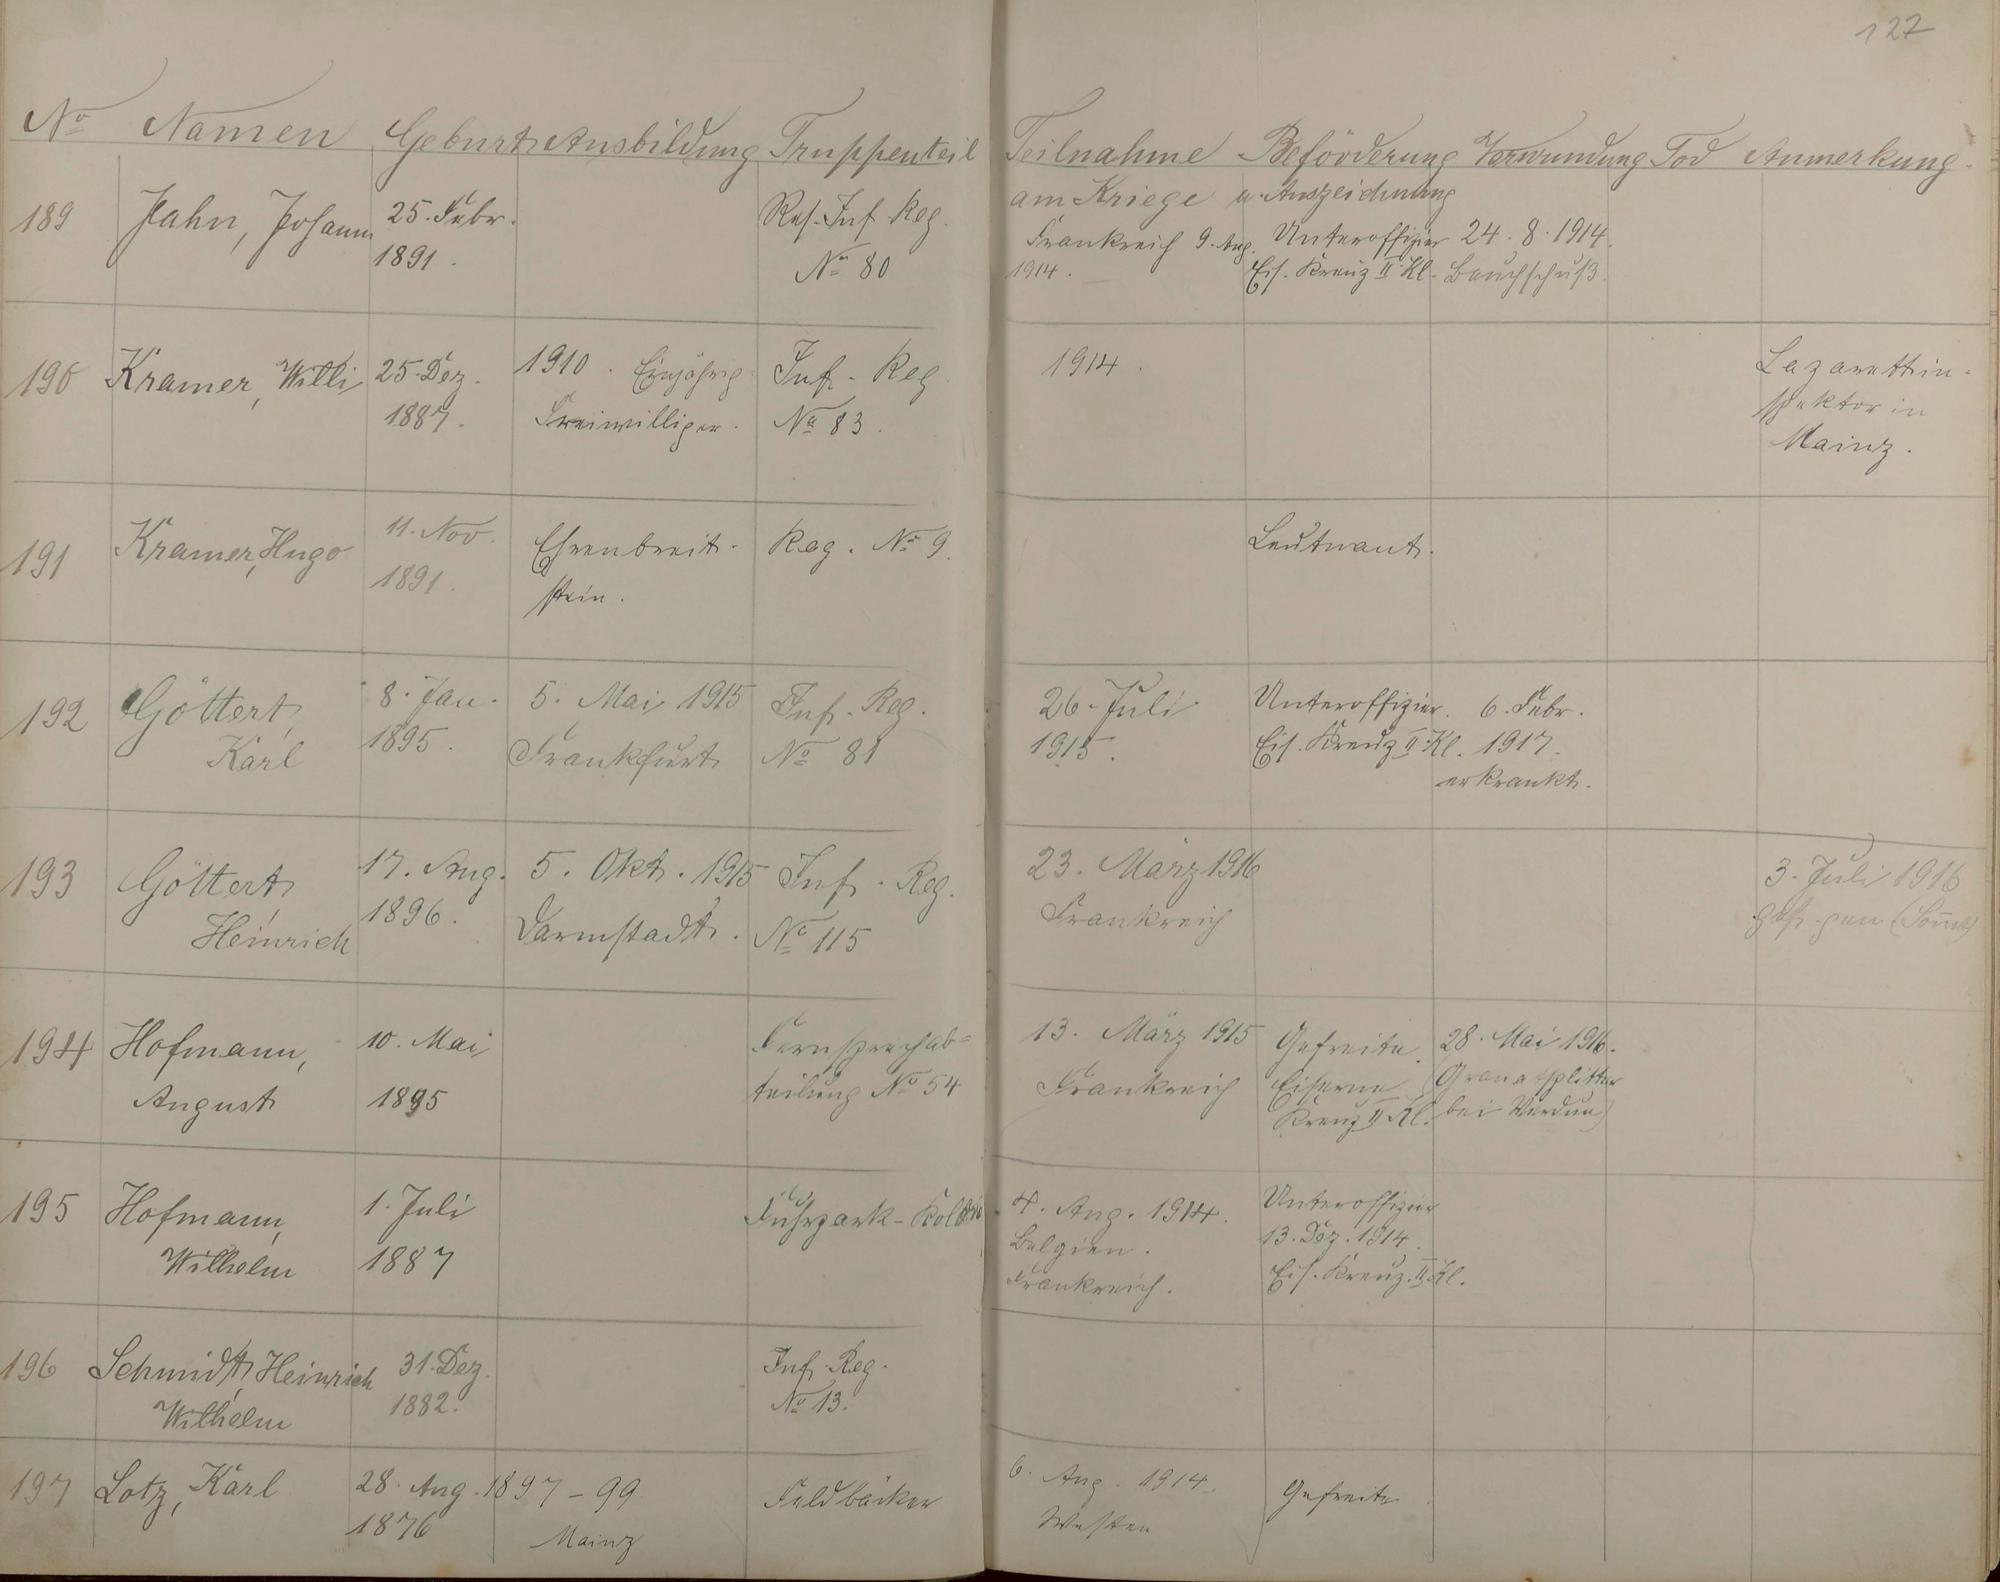 127
No Namen Geburt Ausbildung Truppenteil Teilnahme Beförderung Verwundung Tod Anmerkung.
am Kriege u. Auszeichnung
189 Jahn, Johann 25. Febr. Res. Inf. Reg. Frankreich 9. Aug. Unteroffizier 24. 8. 1914.
1891. No 80 1914. Eis. Kreuz II Kl. Bauchschuß
190 Kramer, Willi 25. Dez. 1910. Einjährig Inf. Reg. 1914. Lazarettin-
1887. Freiwilliger. No 83. spektor in
Mainz.
191 Kramer, Hugo 11. Nov. Ehrenbreit- Reg. No 9. Leutnant.
1891. stein.
192 Göttert, 8. Jan. 5. Mai 1915 Inf. Reg. 26. Juli Unteroffizier. 6. Febr.
Karl 1895. Frankfurt No 81 1915. Eis. Kreuz II Kl. 1917.
erkrankt.
193 Göttert, 17. Aug. 5. Okt. 1915 Inf. Reg. 23. März 1916 3. Juli 1916
Heinrich 1896. Darmstadt. No 115 Frankreich
194 Hofmann, 10. Mai Fernsprechab- 13. März 1915 Gefreite. 28. Mai 1916.
August 1895 teilung No 54 Frankreich Eiserne (Granatsplitter
Kreuz II Kl. bei Verdun)
195 Hofmann, 1. Juli Fuhrpark- 4. Aug. 1914. Unteroffizier
Wilhelm 1887 Belgien. 13. Dez. 1914.
Frankreich. Eis. Kreuz. II Kl.
196 Schmidt, Heinrich 31. Dez. Inf. Reg.
Wilhelm 1882. No 13.
197 Lotz, Karl 28. Aug. 1897-99 Feldbäcker 6. Aug. 1914. Gefreite.
1876 Mainz Westen